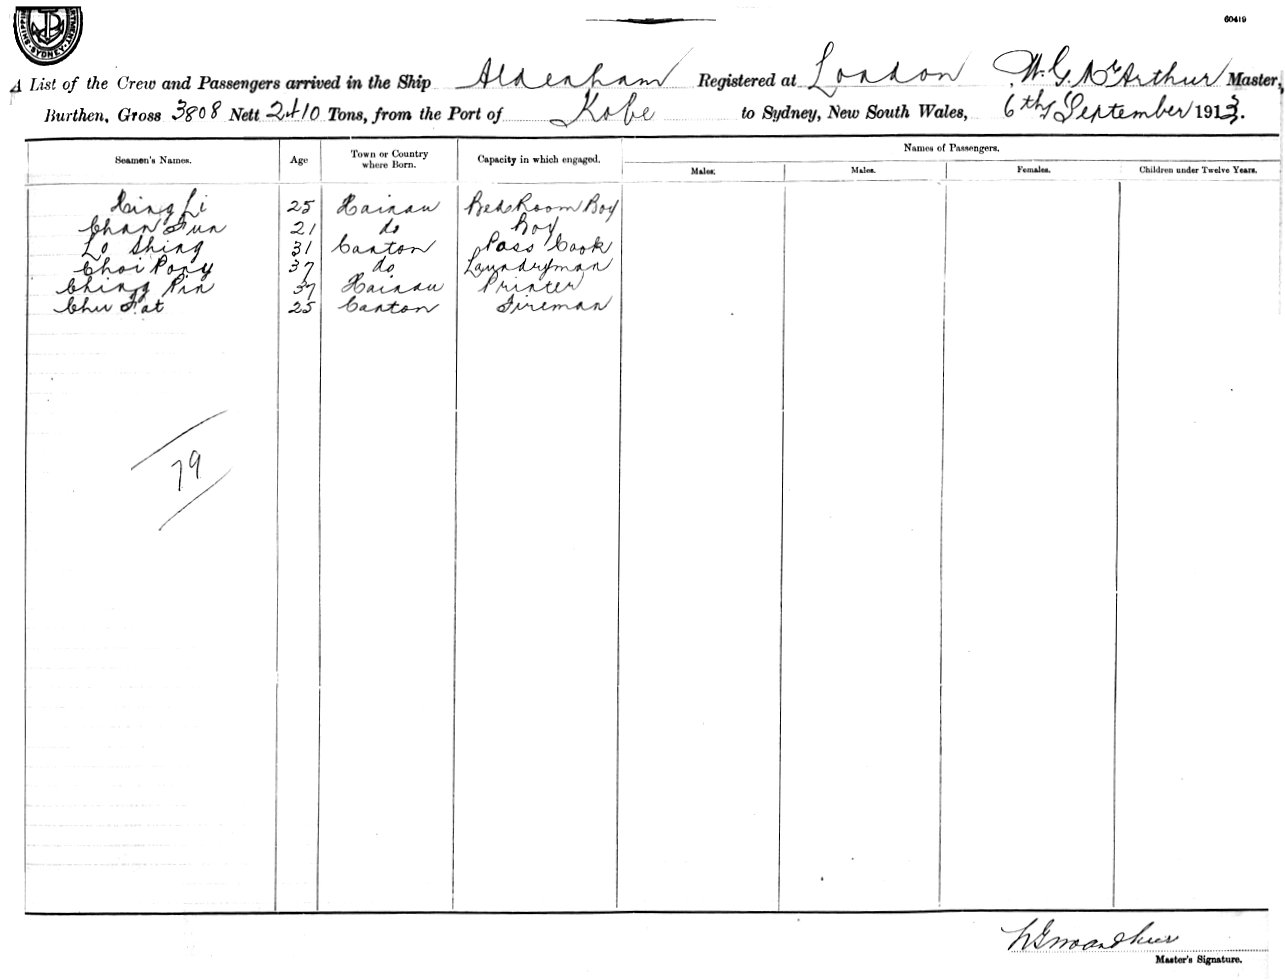 SHIPPING DEPARTMENT SYDNEY
60419
A List of the Crew and Passengers arrived in the Ship Aldenham Registered at London W. G. McArthur Master,
Burthen, Gross 3808 Nett 2410 Tons, from the Port of Kobe to Sydney, New South Wales, 6th September 1913.
Seamen's Names. Age Town or Country where Born. Capacity in which engaged. Names of Passengers.
Males. Males. Females. Children under Twelve Years.
Xing Li 25 Hainau Bed Room Boy
Chan Fun 21 do Boy
Lo Shing 31 Canton Pass Cook
Choi Pony 37 do Laundryman
Ching Pin 37 Hainau Printer
Chu Fat 25 Canton Fireman
79
WGMcArthur
Master's Signature.